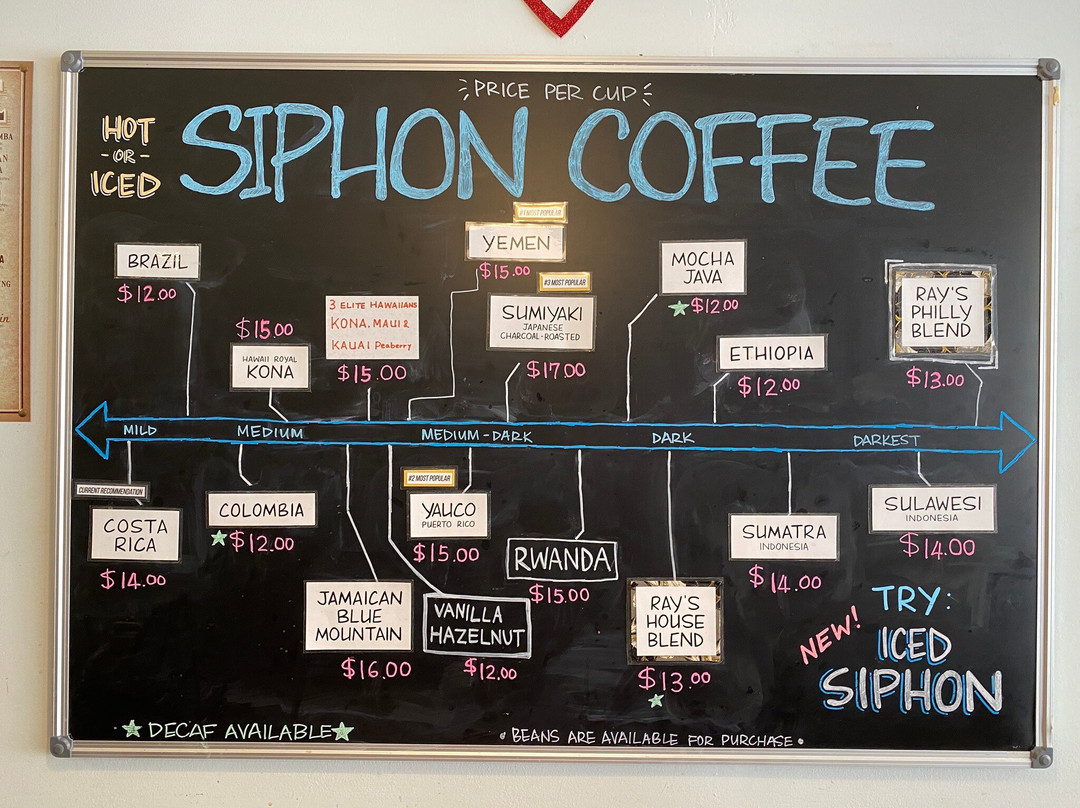 PRICE PER CUP
HOT
-OR-
ICED
SIPHON COFFEE
#1 MOST POPULAR
YEMEN
$15.00
BRAZIL
$12.00
MOCHA
JAVA
$12.00
#3 MOST POPULAR
SUMIYAKI
JAPANESE
CHARCOAL-ROASTED
$17.00
RAY'S
PHILLY
BLEND
$13.00
3 ELITE HAWAIIANS
KONA, MAUI &
KAUAI Peaberry
$15.00
$15.00
HAWAII ROYAL
KONA
ETHIOPIA
$12.00
MILD
MEDIUM
MEDIUM-DARK
DARK
DARKEST
CURRENT RECOMMENDATION
COSTA
RICA
$14.00
COLOMBIA
$12.00
#2 MOST POPULAR
YAUCO
PUERTO RICO
$15.00
RWANDA
$15.00
SUMATRA
INDONESIA
$14.00
SULAWESI
INDONESIA
$14.00
JAMAICAN
BLUE
MOUNTAIN
$16.00
VANILLA
HAZELNUT
$12.00
RAY'S
HOUSE
BLEND
$13.00
TRY:
NEW!
ICED
SIPHON
DECAF AVAILABLE
• BEANS ARE AVAILABLE FOR PURCHASE •